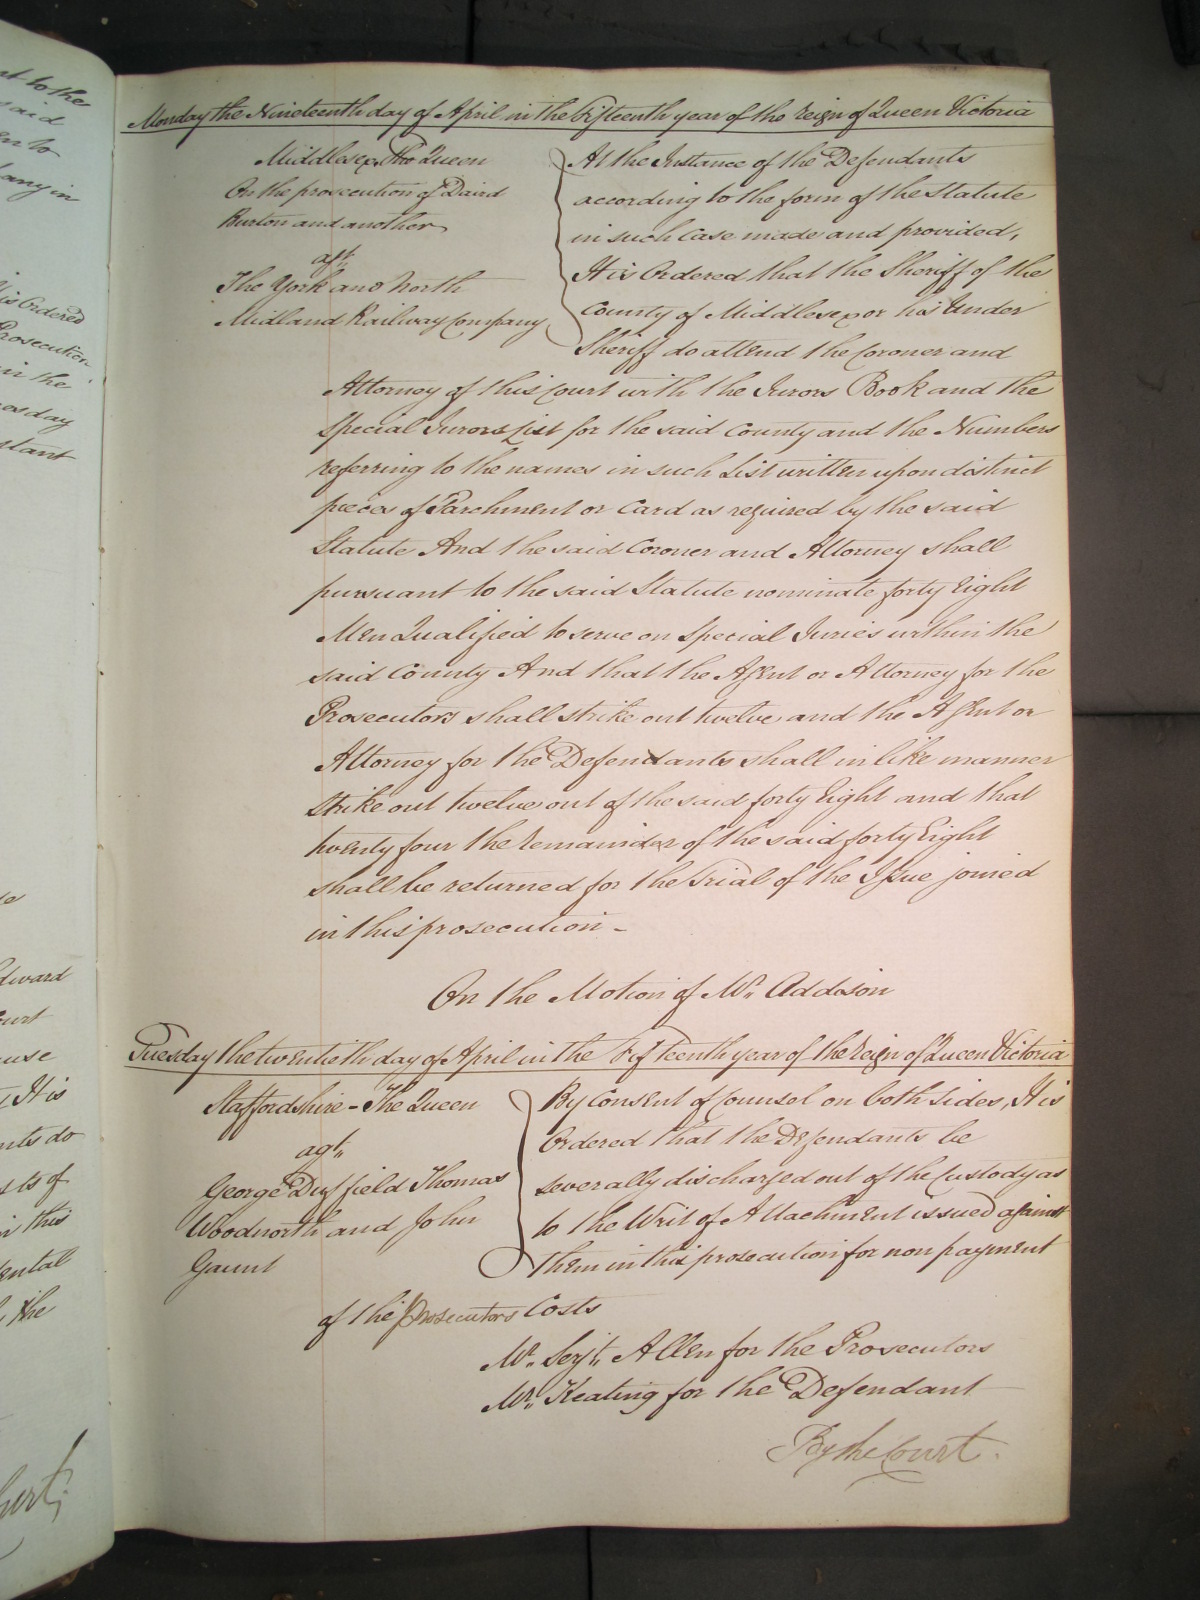 nt to the
said
en to
any in
is Ordered
Prosecution
in the
nesday
stant
Edward
ourt
ause
It is
nts do
sts of
in this
ental
the
Monday the Nineteenth day of April in the fifteenth year of the reign of Queen Victoria
Middlesex The Queen
On the prosecution of David
Burton and another
agt.
The York and North
Midland Railway Company
At the Instance of the Defendants
according to the form of the Statute
in such case made and provided,
It is Ordered that the Sheriff of the
County of Middlesex or his Under
Sheriff do attend the Coroner and
Attorney of this Court with the Jurors Book and the
Special Jurors List for the said County and the Numbers
referring to the names in such List written upon distinct
pieces of Parchment or Card as required by the said
Statute And the said Coroner and Attorney shall
pursuant to the said Statute nominate forty Eight
Men Qualified to serve on Special Juries within the
said County And that the Agent or Attorney for the
Prosecutors shall strike out twelve and the Agent or
Attorney for the Defendants shall in like manner
strike out twelve out of the said forty Eight and that
twenty four the remainder of the said forty Eight
shall be returned for the Trial of the Issue joined
in this prosecution -
On the Motion of Mr. Addison
Tuesday the twentieth day of April in the fifteenth year of the reign of Queen Victoria
Staffordshire - The Queen
agt.
George Duffield Thomas
Woodnorth and John
Gaunt
By Consent of Counsel on both sides, It is
Ordered that the Defendants be
severally discharged out of the Custody as
to the Writ of Attachment issued against
them in this prosecution for non payment
of the Prosecutors Costs
Mr. Serjt. Allen for the Prosecutors
Mr. Keating for the Defendant
By the Court.